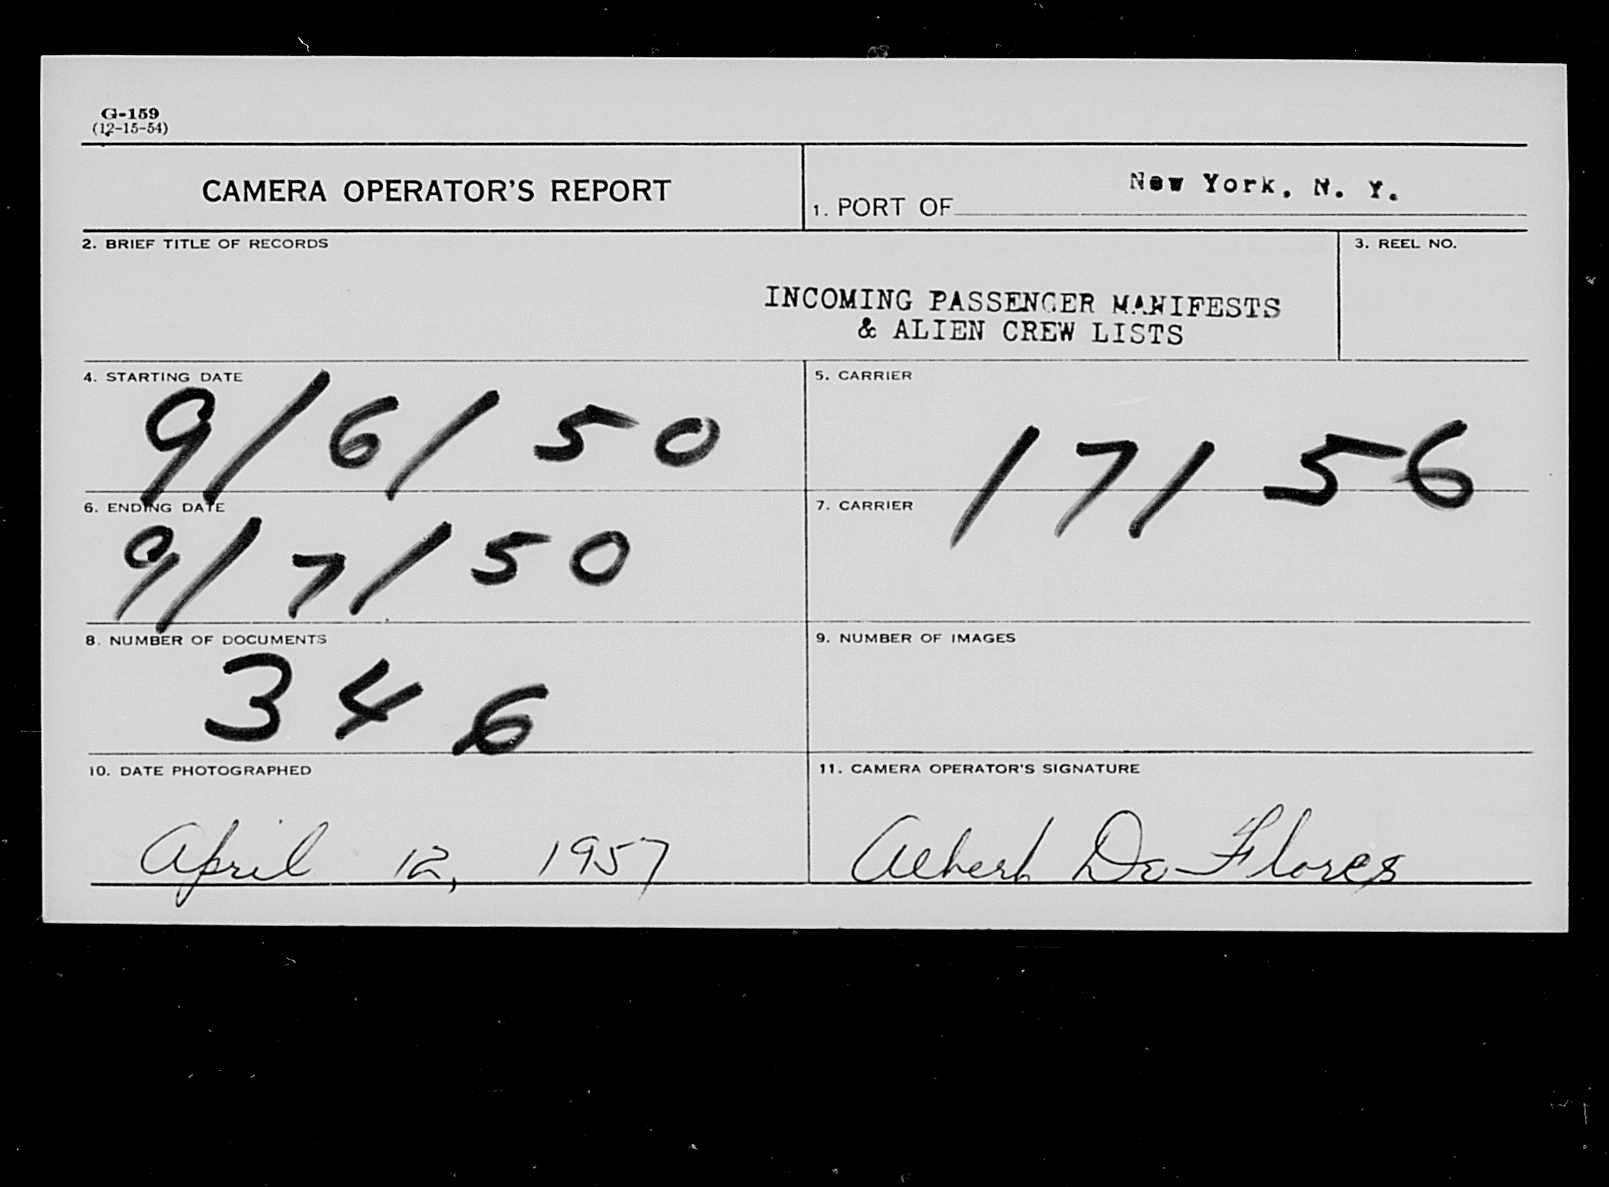 G-159
(12-15-54)
CAMERA OPERATOR'S REPORT
1. PORT OF New York, N. Y.
2. BRIEF TITLE OF RECORDS
3. REEL NO.
INCOMING PASSENGER MANIFESTS
& ALIEN CREW LISTS
4. STARTING DATE
9/6/50
5. CARRIER
17156
6. ENDING DATE
9/7/50
7. CARRIER
8. NUMBER OF DOCUMENTS
346
9. NUMBER OF IMAGES
10. DATE PHOTOGRAPHED
April 12, 1957
11. CAMERA OPERATOR'S SIGNATURE
Albert De Flores